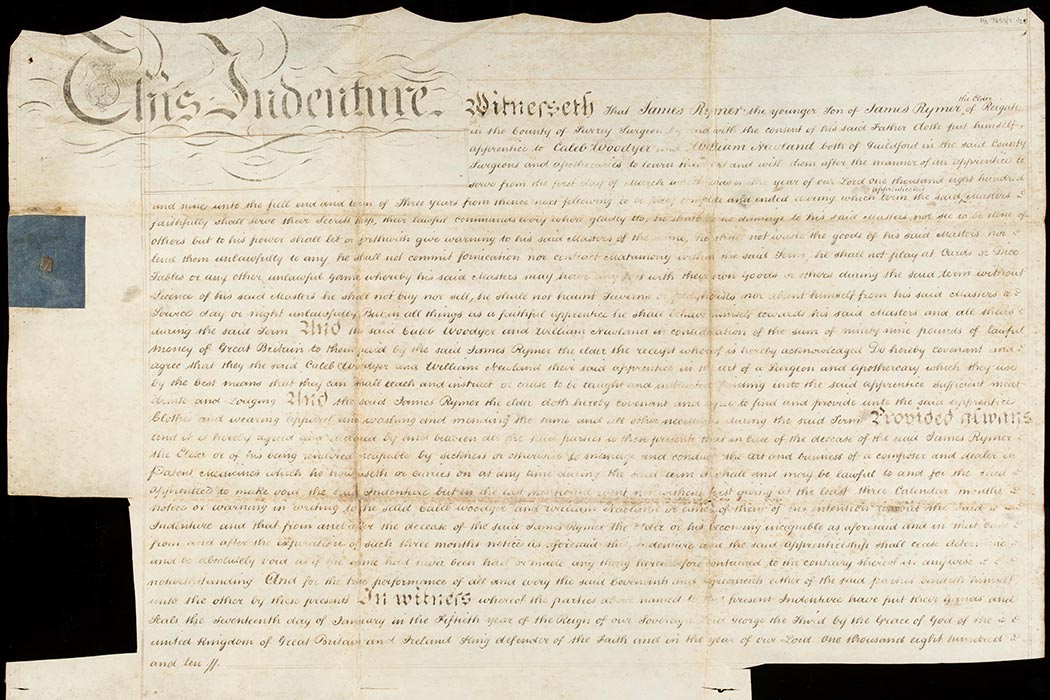 This Indenture Witnesseth That James Rymer the younger Son of James Rymer the Elder of Reigate
in the County of Surrey Surgeon by and with the consent of his said Father doth put himself
apprentice to Caleb Woodyer and William Newland both of Guildford in the said County
Surgeons and Apothecaries to learn their art and with them after the manner of an apprentice to
serve from the first day of March which was in the year of our Lord one thousand eight hundred
and nine unto the full end and term of Three years from thence next following to be fully complete and ended during which term the said apprentice his Masters
faithfully shall serve their secrets keep, their lawful commands every where gladly do, he shall do no damage to his said Masters nor see to be done of
others but to his power shall let or forthwith give warning to his said Masters of the same, he shall not waste the goods of his said Masters nor
lend them unlawfully to any he shall not commit fornication nor contract Matrimony within the said Term, he shall not play at Cards or Dice
Tables or any other unlawful Game whereby his said Masters may have any loss with their own Goods or others during the said term without
Licence of his said Masters he shall not buy nor sell, he shall not haunt Taverns or playhouses nor absent himself from his said Masters
Service day or night unlawfully But in all things as a faithful apprentice he shall behave himself towards his said Masters and all theirs
during the said Term And the said Caleb Woodyer and William Newland in consideration of the sum of ninety nine pounds of lawful
money of Great Britain to them paid by the said James Rymer the elder the receipt whereof is hereby acknowledged Do hereby covenant and
agree that they the said Caleb Woodyer and William Newland their said apprentice in the art of a Surgeon and Apothecary which they use
by the best means that they can shall teach and instruct or cause to be taught and instructed finding unto the said apprentice sufficient meat
drink and Lodging And the said James Rymer the elder doth hereby covenant and agree to find and provide unto the said apprentice
Clothes and wearing apparel and washing and mending the same and all other necessaries during the said Term Provided always
and it is hereby agreed and declared by and between all the said parties to these presents that in case of the decease of the said James Rymer
the Elder or of his being rendered incapable by sickness or otherwise to manage and conduct the art and business of a composer and dealer in
Patent Medicines which he now useth or carries on at any time during the said term it shall and may be lawful to and for the said
apprentice to make void the said Indenture but in the last mentioned event not without first giving at the least three Calendar months
notice or warning in writing to the said Caleb Woodyer and William Newland or either of them of his intention to void the said
Indenture and that from and after the decease of the said James Rymer the Elder or his becoming incapable as aforesaid and in that case
from and after the expiration of such three months notice as aforesaid this Indenture and the said apprenticeship shall cease determine
and be absolutely void as if the same hold have been had or made any thing hereinbefore contained to the contrary thereof in anywise
notwithstanding And for the true performance of all and every the said Covenants and agreements either of the said parties bindeth himself
unto the other by these presents In witness whereof the parties above named to this present Indenture have put their hands and
Seals the Seventeenth day of January in the Fiftieth year of the Reign of our Sovereign Lord George the Third by the Grace of God of the
united kingdom of Great Britain and Ireland King defender of the Faith and in the year of our Lord One thousand eight hundred
and ten //.